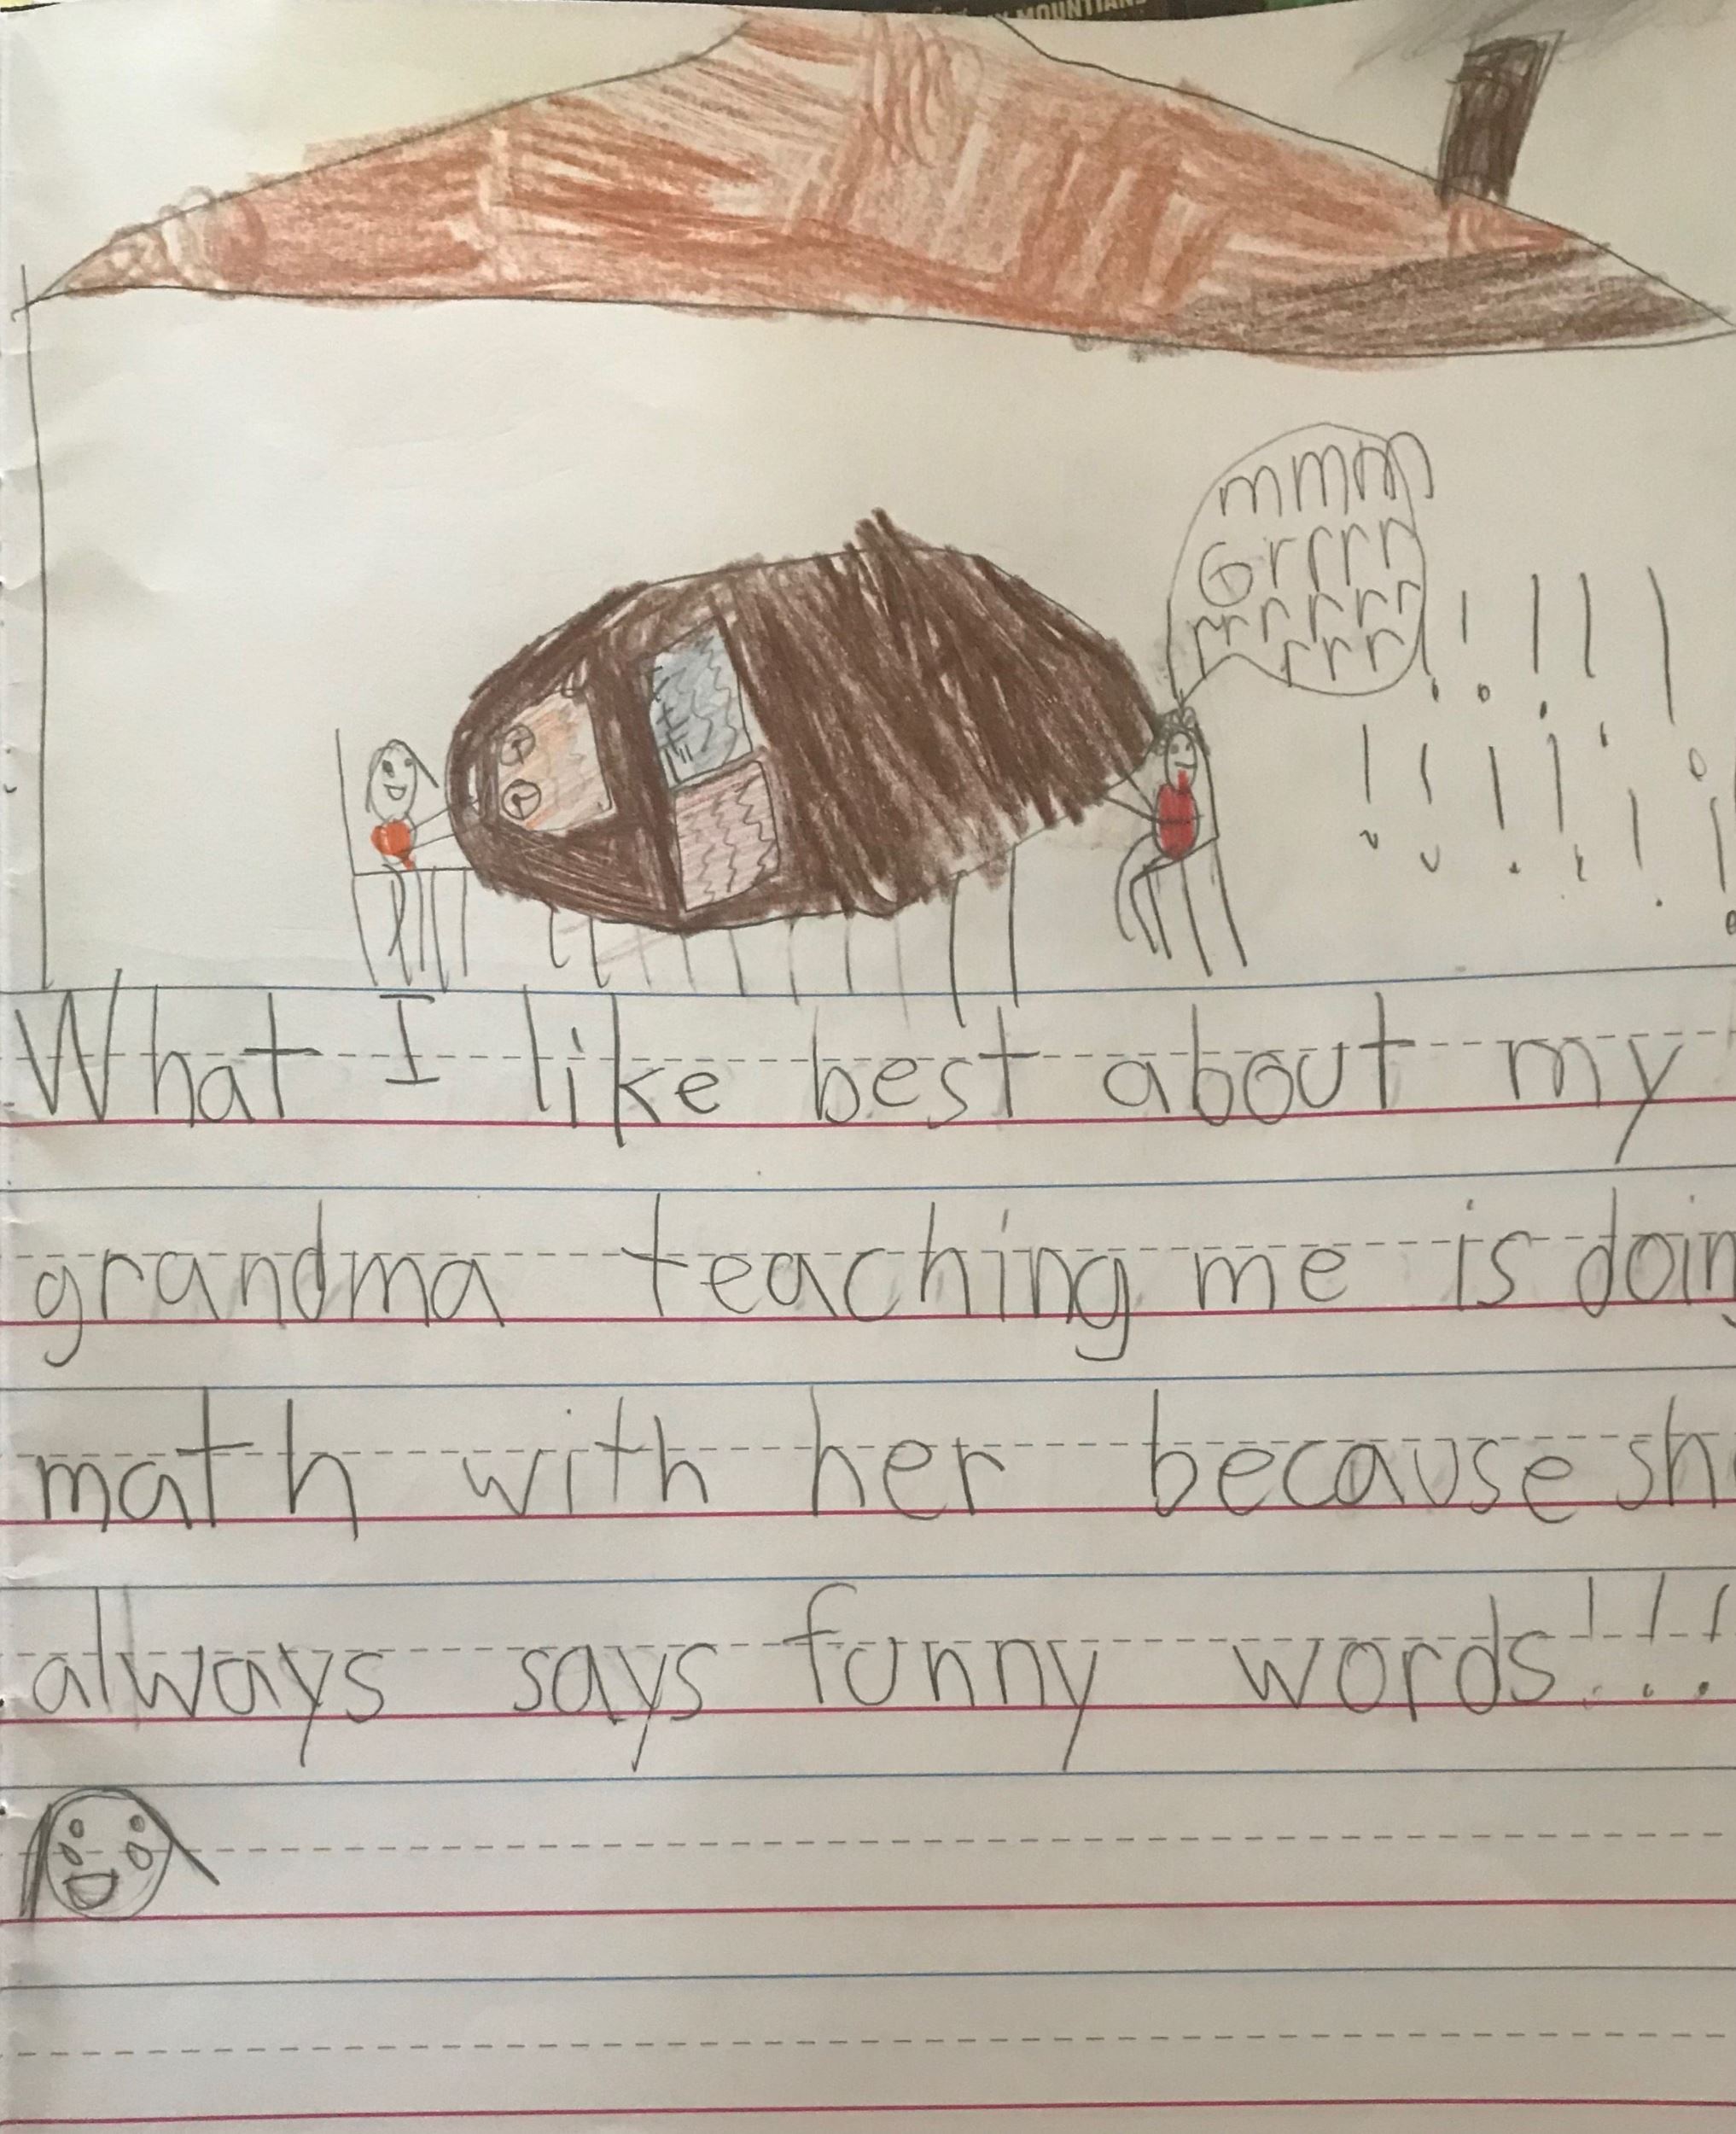 MOUNTIANS
mmm
Grrrr
rrrrrr
rrr
What I like best about my
grandma teaching me is doing
math with her because sh
always says funny words!!!